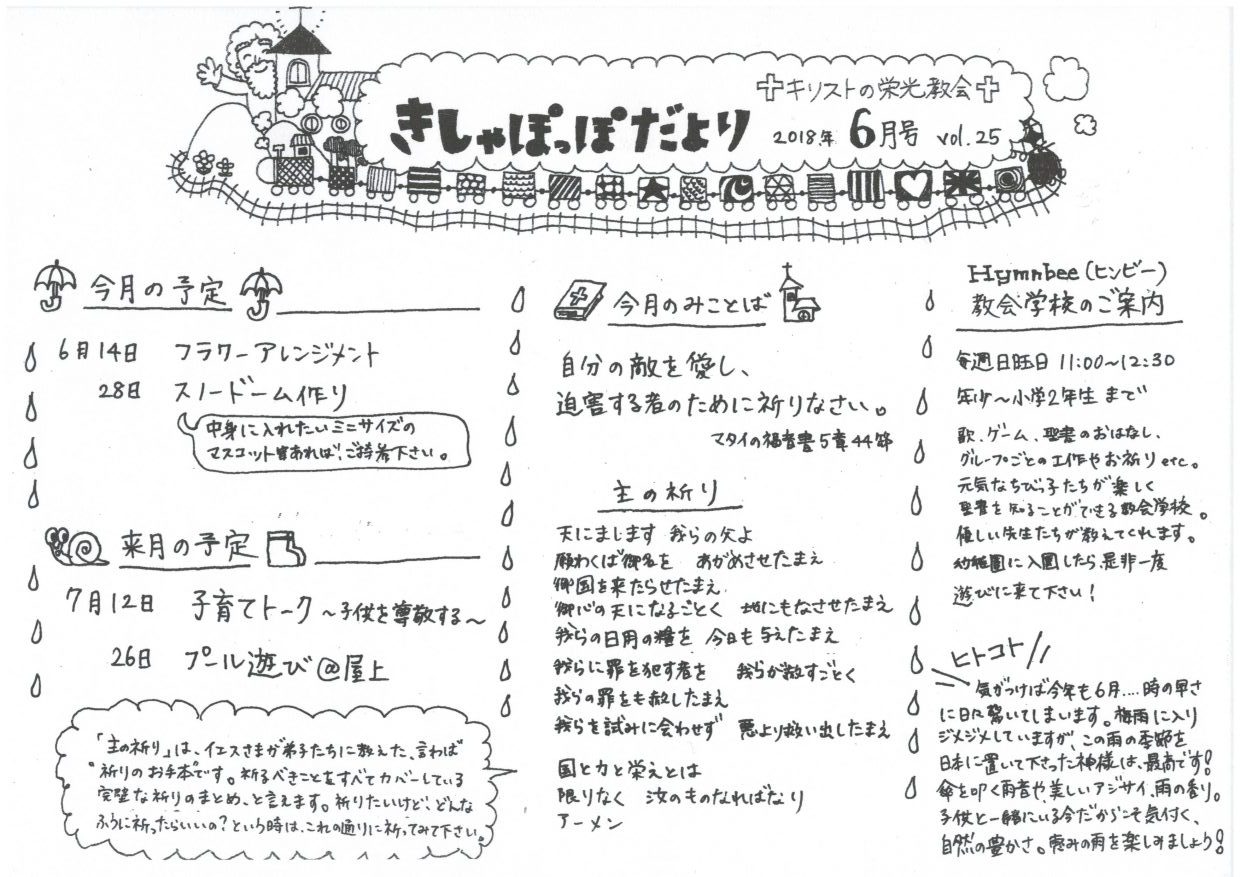 ✝キリストの栄光教会✝
きしゃぽっぽだより 2018年 6月号 vol.25
今月の予定
6月14日 フラワーアレンジメント
28日 スノードーム作り
中身に入れたいミニサイズの
マスコット等あれば、ご持参下さい。
来月の予定
7月12日 子育てトーク ～子供を尊敬する～
26日 プール遊び@屋上
「主の祈り」は、イエスさまが弟子たちに教えた、言わば
"祈りのお手本"です。祈るべきことをすべてカバーしている
完璧な祈りのまとめ、と言えます。祈りたいけど、どんな
ふうに祈ったらいいの?という時は、これの通りに祈ってみて下さい。
今月のみことば
自分の敵を愛し、
迫害する者のために祈りなさい。
マタイの福音書5章44節
主の祈り
天にまします 我らの父よ
願わくば御名を あがめさせたまえ
御国を来たらせたまえ
御心の天になるごとく 地にもなさせたまえ
我らの日用の糧を 今日も与えたまえ
我らに罪を犯す者を 我らが赦すごとく
我らの罪をも赦したまえ
我らを試みに会わせず 悪より救い出したまえ
国と力と栄えとは
限りなく 汝のものなればなり
アーメン
Hymnbee(ヒンビー)
教会学校のご案内
毎週日曜日 11:00～12:30
年少～小学2年生 まで
歌、ゲーム、聖書のおはなし、
グループごとの工作やお祈り etc。
元気なちびっ子たちが楽しく
聖書を知ることができる教会学校。
優しい先生たちが教えてくれます。
幼稚園に入園したら、是非一度
遊びに来て下さい!
ヒトコト
気がつけば今年も6月....時の早さ
に日々驚いてしまいます。梅雨に入り
ジメジメしていますが、この雨の季節を
日本に置いて下さった神様は、最高です!
傘を叩く雨音や、美しいアジサイ、雨の香り。
子供と一緒にいる今だからこそ気付く、
自然の豊かさ。恵みの雨を楽しみましょう!